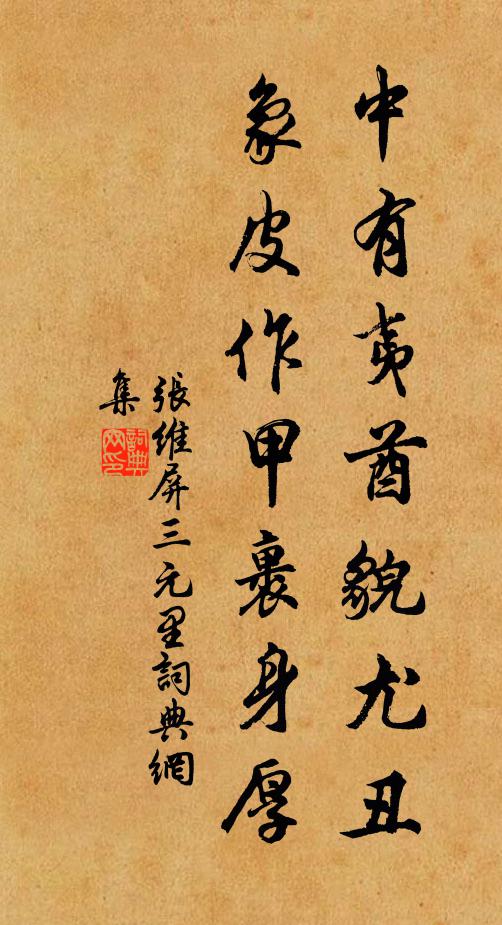 中有夷酋貌尤丑
象皮作甲裹身厚
張維屏三元里詞典網
集
詞典網印